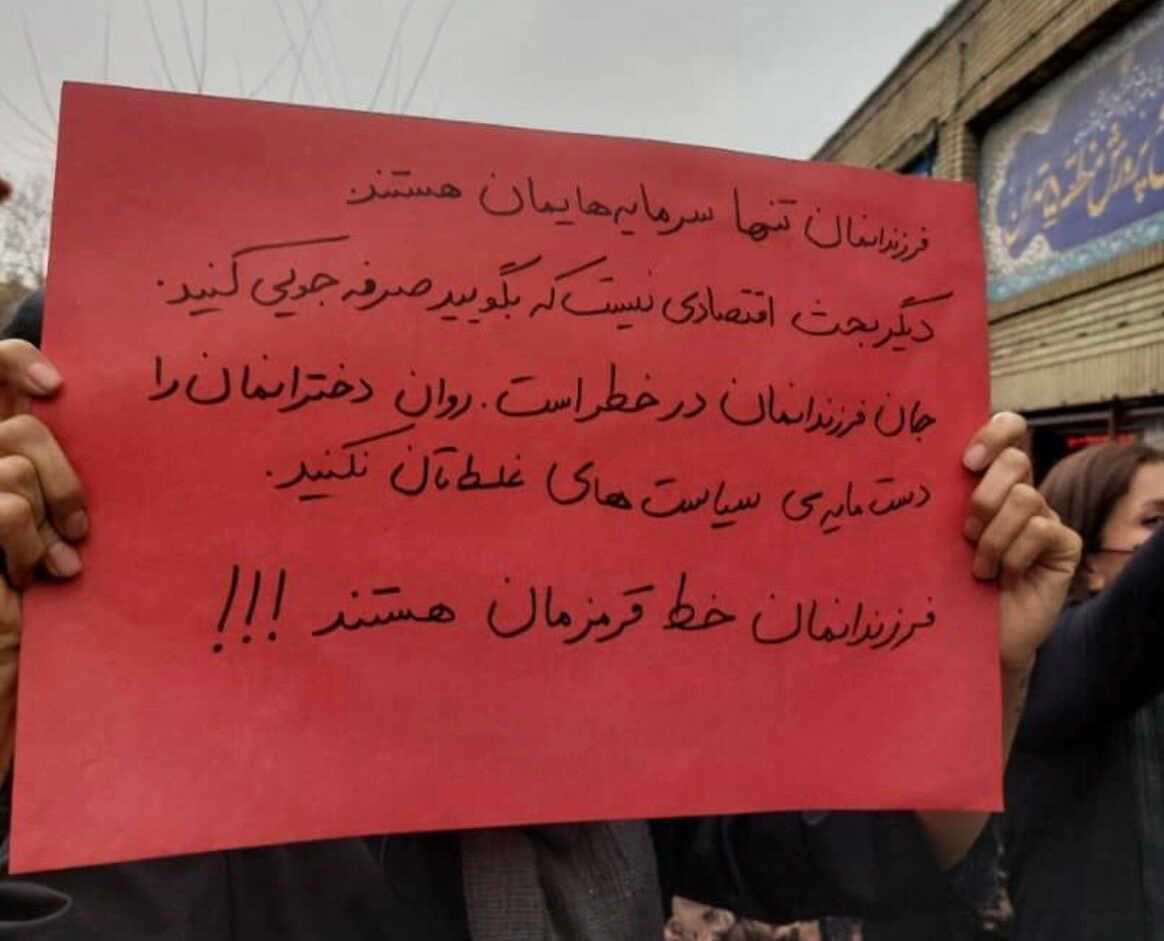 فرزندانمان تنها سرمایه‌هایمان هستند.
دیگر بحث اقتصادی نیست که بگویید صرفه جویی کنید.
جان فرزندانمان در خطر است. روان دخترانمان را
دست مایه‌ی سیاست های غلط تان نکنید.
فرزندانمان خط قرمزمان هستند !!!
پرورش منطقه ۵ تهران